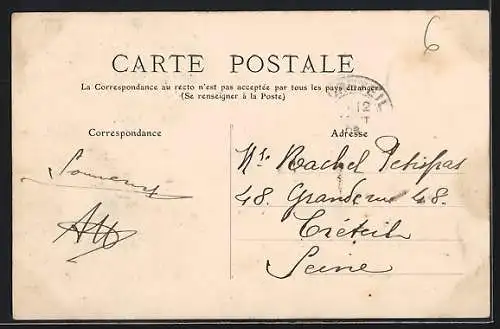 6
CARTE POSTALE
La Correspondance au recto n'est pas acceptée par tous les pays étrangers
(Se renseigner à la Poste)
Correspondance
Adresse
12
Rachel Petitpas
48. Grande rue 48.
Créteil
Seine